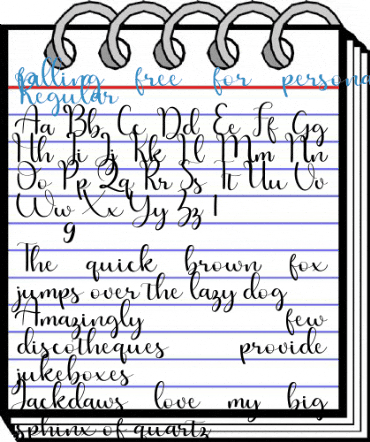 falling free for persona
Regular
Aa Bb Cc Dd Ee Ff Gg
Hh Ii Jj Kk Ll Mm Nn
Oo Pp Qq Rr Ss Tt Uu Vv
Ww Xx Yy Zz 1
9
The quick brown fox
jumps over the lazy dog
Amazingly few
discotheques provide
jukeboxes
Jackdaws love my big
sphinx of quartz